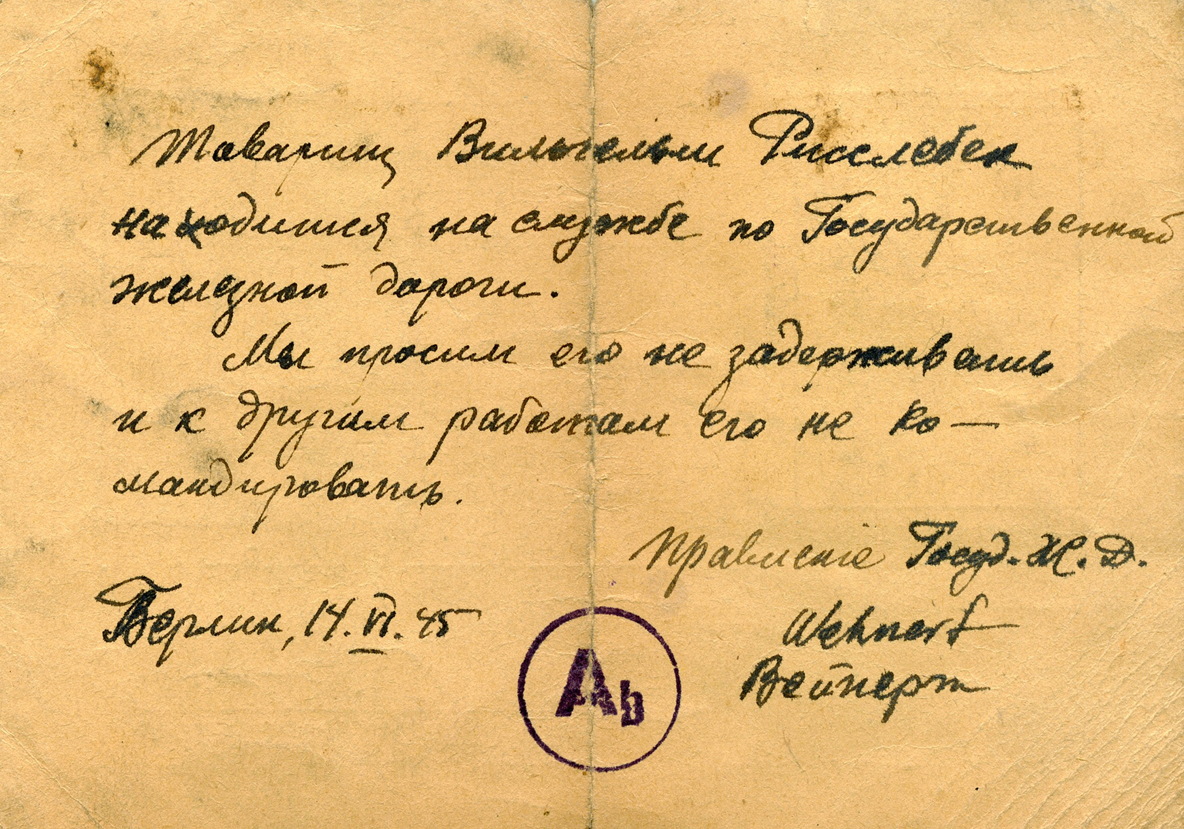 Товарищ Вильгельм Рисслебек
находится на службе по Государственной
железной дороги.
Мы просим его не задерживать
и к другим работам его не ко—
мандировать.
Правление Госуд. Ж. Д.
Берлин, 14. VI. 45
Wehnert
Вейнерт
Ab